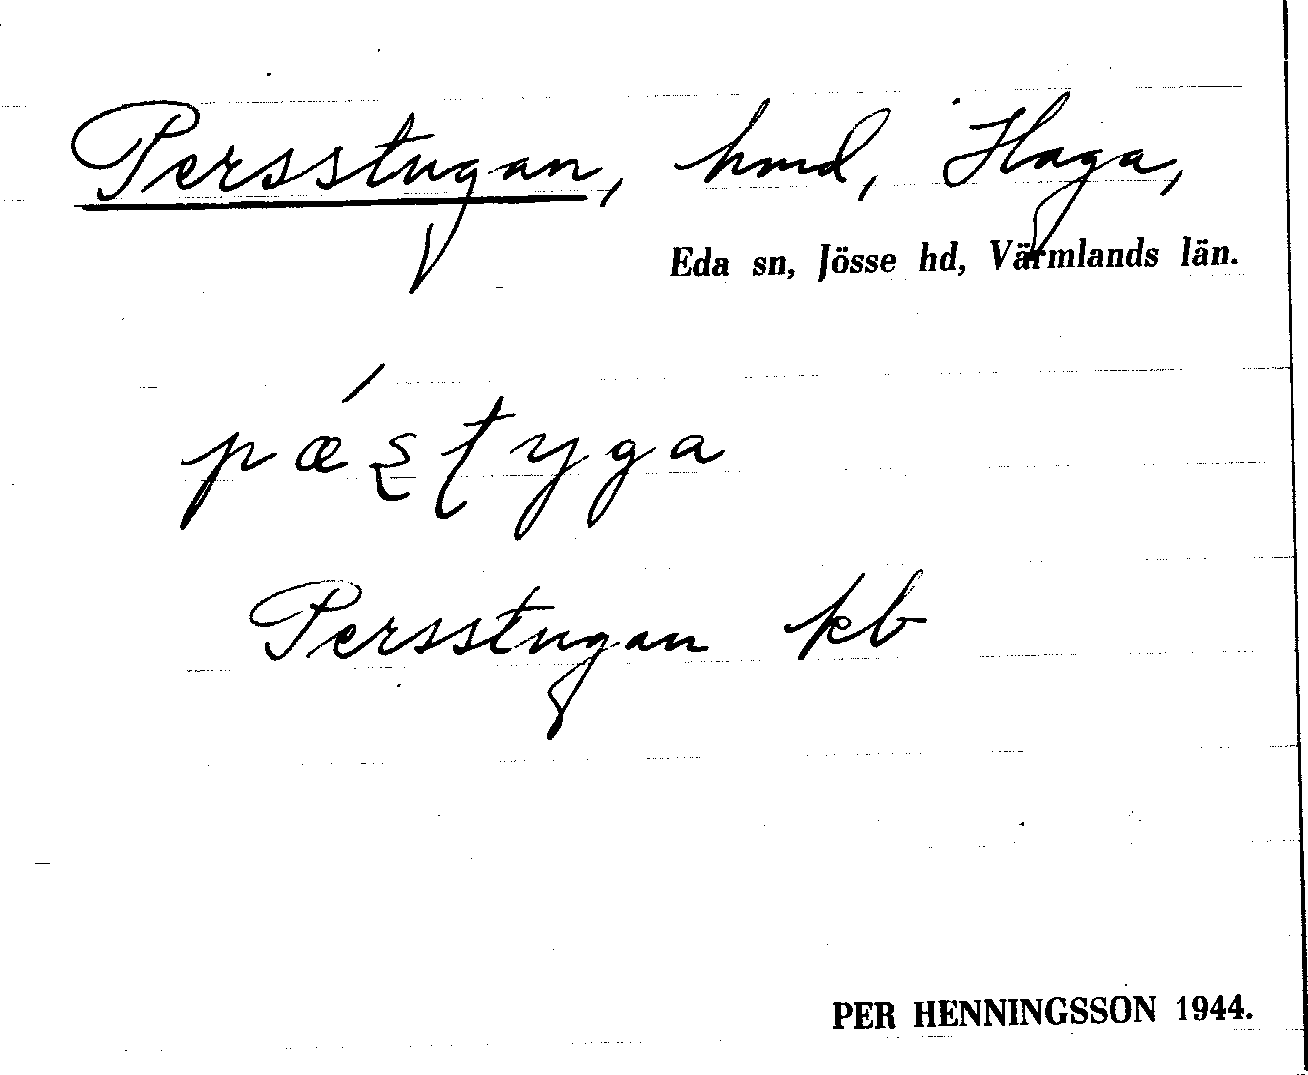 Persstugan, hmd, Haga,
Eda sn, Jösse hd, Värmlands län.
pǽꞩƫyga
Persstugan kb
PER HENNINGSSON 1944.